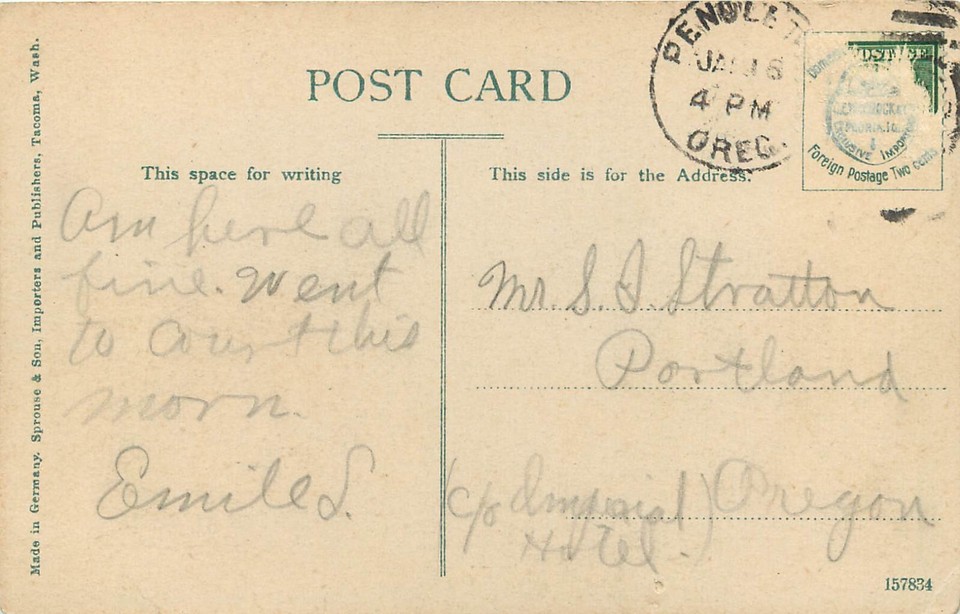 POST CARD
This space for writing
Am here all
fine. Went
to Court this
morn.
Emile S.
This side is for the Address.
Mr. S. I. Stratton
Portland
Oregon
(c/o Imperial)
Hotel.
PENDLET
JAN 16
4 PM
OREG.
Foreign Postage Two cents
Made in Germany. Sprouse & Son, Importers and Publishers, Tacoma, Wash.
157834